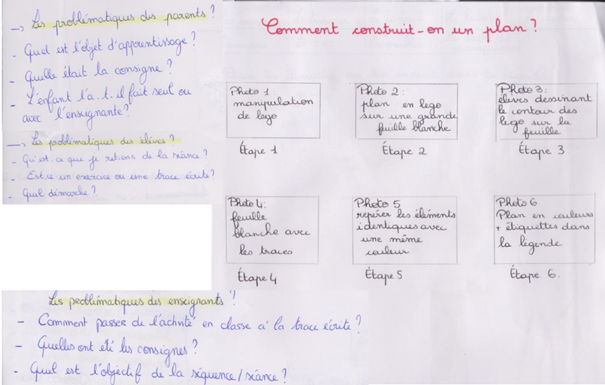 → Les problématiques des parents ?
- Quel est l'objet d'apprentissage ?
- Quelle était la consigne ?
- L'enfant l'a.t.il fait seul ou
avec l'enseignante ?
→ Les problématiques des élèves ?
- Qu'est.ce que je retiens de la séance ?
- Est.ce un exercice ou une trace écrite ?
- Quel démarche ?
Comment construit-on un plan ?
Photo 1
manipulation
de lego
Étape 1
Photo 2 :
plan en lego
sur une grande
feuille blanche
Étape 2
Photo 3 :
élèves dessinant
le contour des
lego sur la
feuille
Étape 3
Photo 4 :
feuille
blanche avec
les traces
Étape 4
Photo 5
repérer les éléments
identiques avec
une même
couleur
Étape 5
Photo 6
Plan en couleurs
+ étiquettes dans
la légende
Étape 6.
Les problématiques des enseignants ?
- Comment passer de l'activité en classe à la trace écrite ?
- Quelles ont été les consignes ?
- Quel est l'objectif de la séquence/séance ?